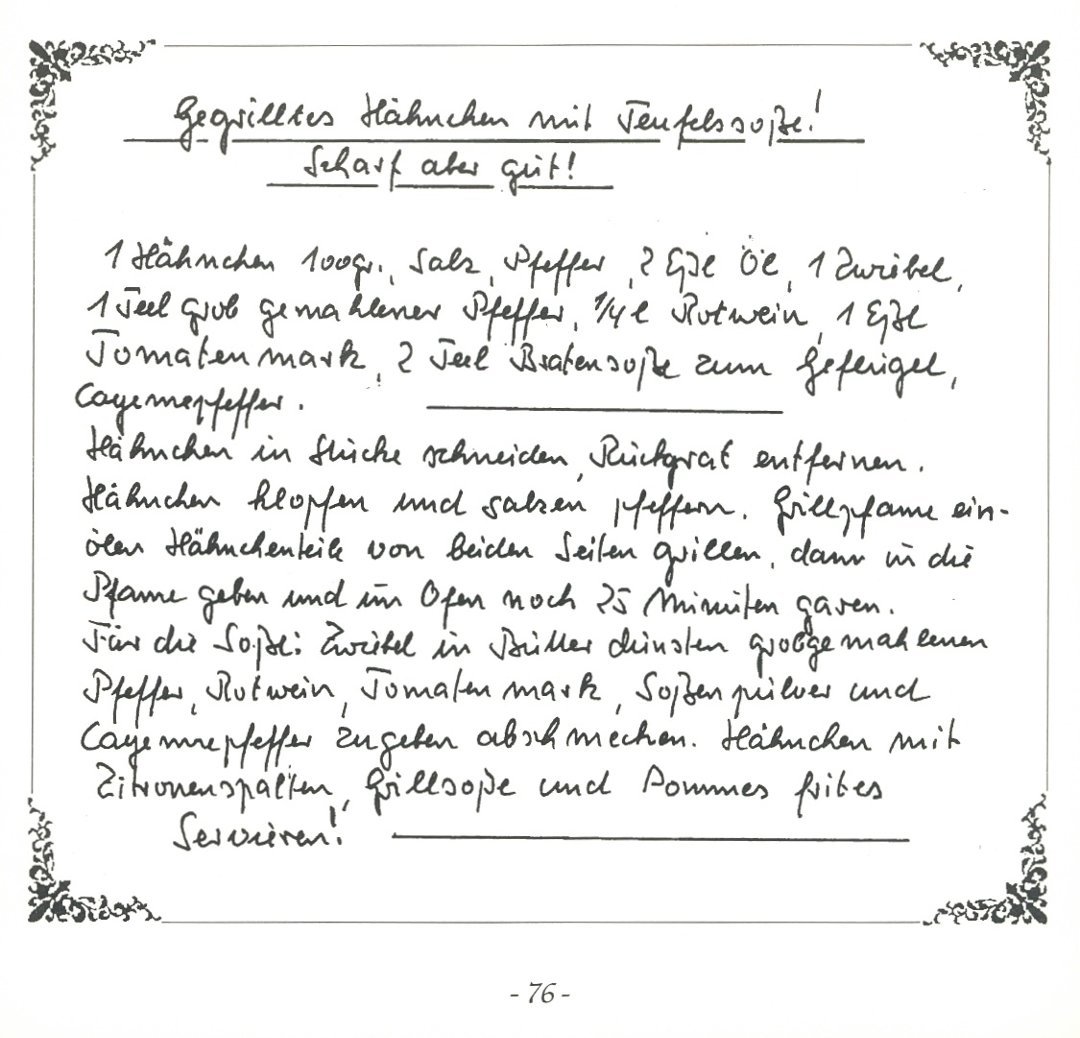 Gegrilltes Hähnchen mit Teufelssoße!
Scharf aber gut!
1 Hähnchen 100gr., Salz, Pfeffer, 2 Eßl Öl, 1 Zwiebel,
1 Teel grob gemahlener Pfeffer, 1/4 l Rotwein, 1 Eßl
Tomatenmark, 2 Teel Bratensoße zum Geflügel,
Cayennepfeffer.
Hähnchen in Stücke schneiden, Rückgrat entfernen.
Hähnchen klopfen und salzen pfeffern. Grillpfanne ein-
ölen Hähnchenteile von beiden Seiten grillen, dann in die
Pfanne geben und im Ofen noch 25 Minuten garen.
Für die Soße: Zwiebel in Butter dünsten grobgemahlenen
Pfeffer, Rotwein, Tomatenmark, Soßenpulver und
Cayennepfeffer zugeben abschmecken. Hähnchen mit
Zitronenspalten, Grillsoße und Pommes frites
Servieren!
- 76 -